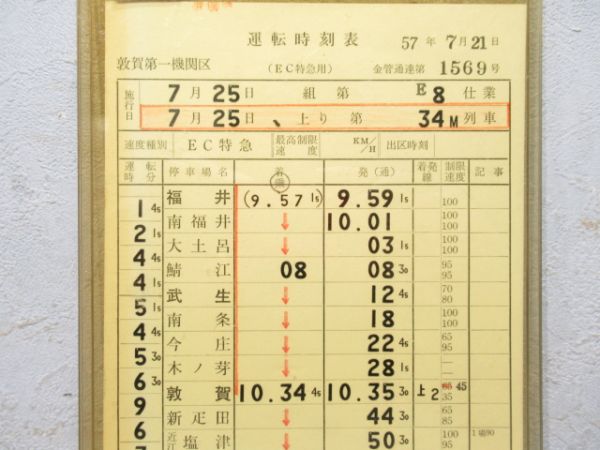 運転時刻表 57年7月21日
敦賀第一機関区 (EC特急用) 金管通達第1569号
施行日 7月25日 組第 E8仕業
7月25日、上り第 34M列車
速度種別 EC特急 最高制限速度 KM/H 出区時刻
運転時分 停車場名 着 発(通) 着発線 制限速度 記事
福井 (9.57 1s) 9.59 1s 100
1 4s 南福井 ↓ 10.01 100 100
2 1s 大土呂 ↓ 03 1s 100 100
4 4s 鯖江 08 08 3o 95 95
4 1s 武生 ↓ 12 4s 70 80
5 1s 南条 ↓ 18 100 100
4 4s 今庄 ↓ 22 4s 65 95
5 3o 木ノ芽 ↓ 28 1s — —
6 3o 敦賀 10.34 4s 10.35 3o 上2 45 35
9 新疋田 ↓ 44 3o 65 85
6 近江塩津 ↓ 50 3o 100 95 1場90